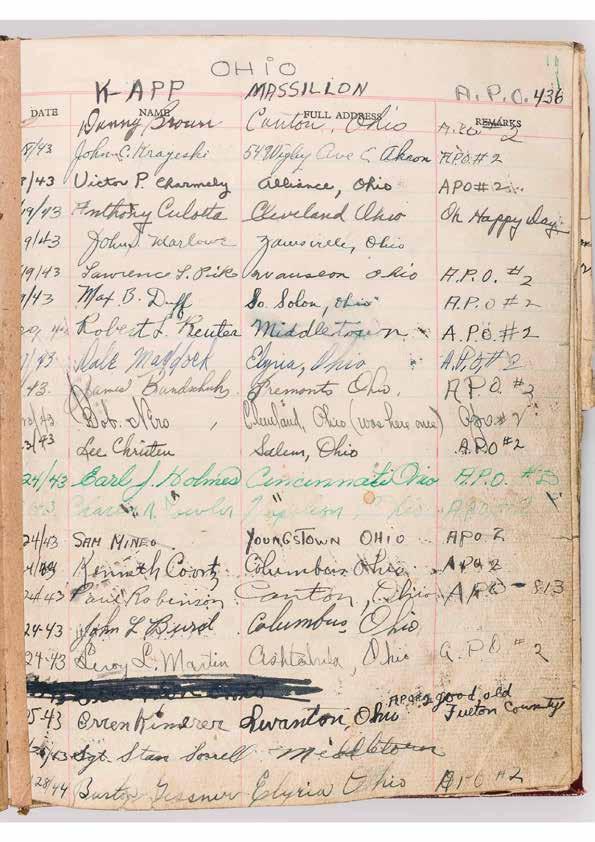 OHIO
K-APP MASSILLON A.P.O. 436
DATE NAME FULL ADDRESS REMARKS
Danny Brown Canton, Ohio A.P.O. 2
/43 John C. Krajeski 549 Wigley Ave C. Akron A.P.O. #2
/43 Victor P. Charmely Alliance, Ohio APO #2
19/43 Anthony Culotta Cleveland Ohio Oh Happy Day
9/43 John Marlowe Ohio
19/43 Lawrence L. Pike Wauseon Ohio A.P.O. #2
/43 Max B. Duff So. Solon, Ohio A.P.O #2
Robert L. Reuter Middletown A.P.O. #2
/43 Dale Maddock Elyria, Ohio A.P.O #2
43. James Bundschuh Fremont, Ohio. A.P.O #2
/43 Bob. Niro, Cleveland, Ohio (was here once) Apo #2
/43 Lee Christen Salem, Ohio A.P.O #2
24/43 Earl J. Holmes Cincinnati Ohio A.P.O.
Napoleon, Ohio
24/43 SAM MINEO YOUNGSTOWN OHIO APO 2
Kenneth Columbus Ohio. Apo 2
24-43 Paul Robinson Canton, Ohio APO - 813
24-43 John L Columbus, Ohio
24-43 Leroy L. Martin Ashtabula, Ohio A.P.O #2
25-43 Orren Kimerer Swanton, Ohio APO #2 good, old
Fulton County
/43 Sgt. Stan Sorrell - Middletown
/28/44 Burton Elyria Ohio APO #2